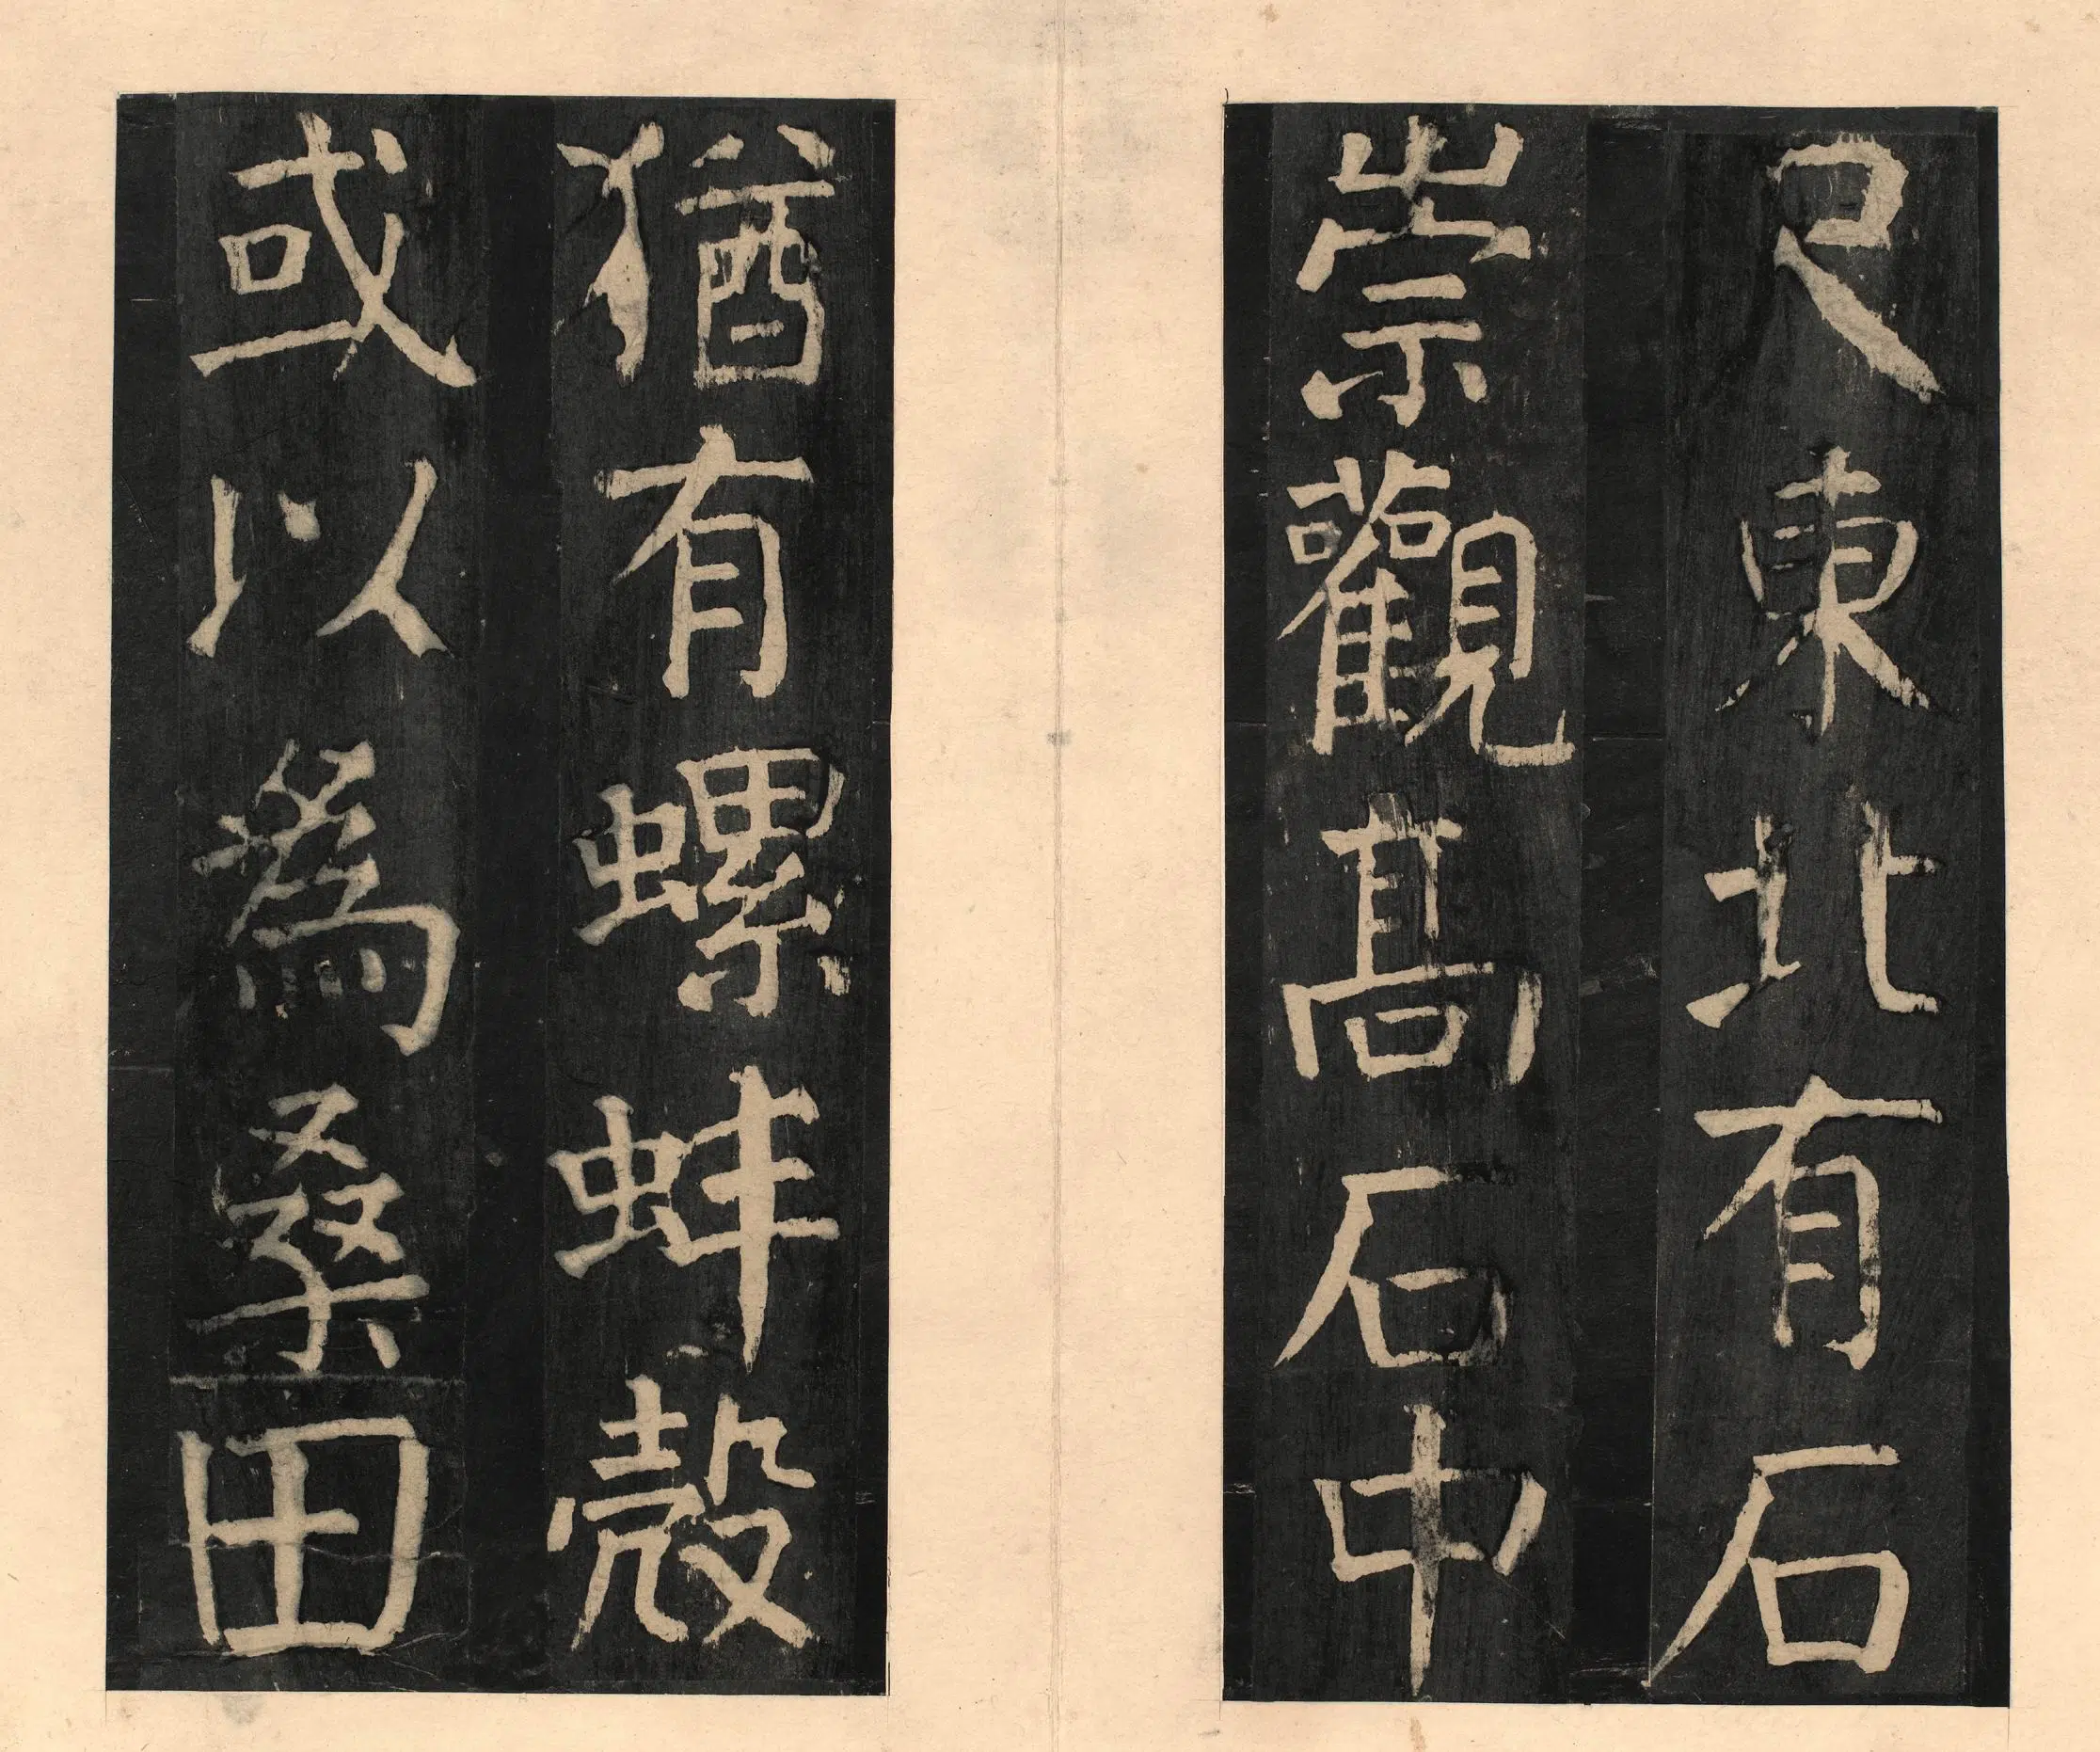 尺東北有石
崇觀髙石中
猶有螺蚌殼
或以為桑田